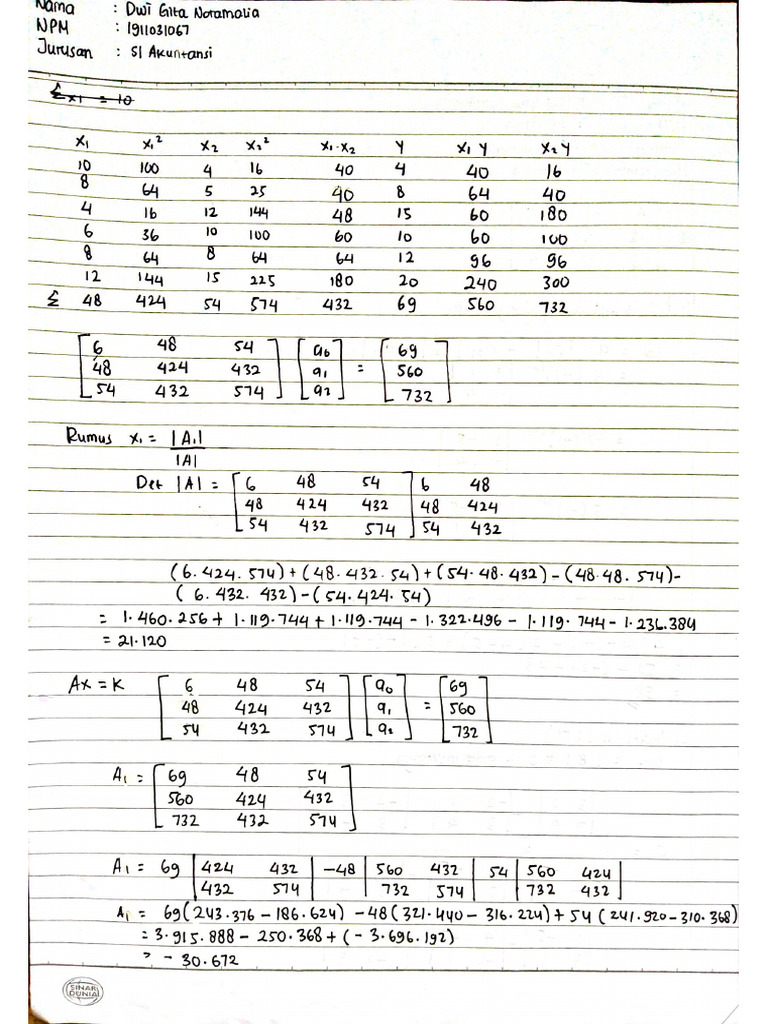 Nama : Dwi Gita Noramalia
NPM : 1911031067
Jurusan : S1 Akuntansi
Σx1 = 10
X1 X1² X2 X2² X1·X2 Y X1 Y X2 Y
10 100 4 16 40 4 40 16
8 64 5 25 40 8 64 40
4 16 12 144 48 15 60 180
6 36 10 100 60 10 60 100
8 64 8 64 64 12 96 96
12 144 15 225 180 20 240 300
Σ 48 424 54 574 432 69 560 732
[6 48 54] [a0] [69]
[48 424 432] [a1] = [560]
[54 432 574] [a2] [732]
Rumus x1 = |A1|
|A|
Det |A| = [6 48 54] 6 48
[48 424 432] 48 424
[54 432 574] 54 432
(6. 424. 574) + (48. 432. 54) + (54. 48. 432) - (48. 48. 574) -
(6. 432. 432) - (54. 424. 54)
= 1.460.256 + 1.119.744 + 1.119.744 - 1.322.496 - 1.119.744 - 1.236.384
= 21.120
AX = K [6 48 54] [a0] [69]
[48 424 432] [a1] = [560]
[54 432 574] [a2] [732]
A1 = [69 48 54]
[560 424 432]
[732 432 574]
A1 = 69 |424 432| -48 |560 432| 54 |560 424|
|432 574| |732 574| |732 432|
A1 = 69(243.376 - 186.624) - 48(321.440 - 316.224) + 54(241.920 - 310.368)
= 3.915.888 - 250.368 + (-3.696.192)
= - 30.672
SINAR
DUNIA